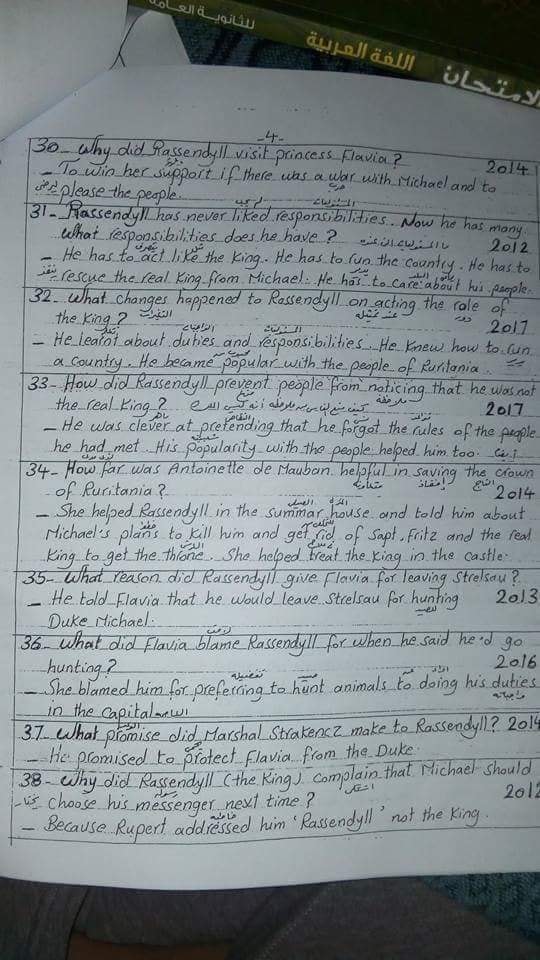 للثانوية العامة
اللغة العربية
الامتحان
-4-
30- Why did Rassendyll visit princess Flavia? 2014
- To win her support if there was a war with Michael and to
please the people.
31- Rassendyll has never liked responsibilities. Now he has many
What responsibilities does he have? 2012
- He has to act like the King. He has to run the country. He has to
rescue the real King from Michael. He has to care about his people.
32- What changes happened to Rassendyll on acting the role of
the King? 2017
- He learnt about duties and responsibilities. He knew how to run
a country. He became popular with the people of Ruritania.
33- How did Rassendyll prevent people from noticing that he was not
the real King? 2017
- He was clever at pretending that he forgot the rules of the people
he had met. His popularity with the people helped him too.
34- How far was Antoinette de Mauban helpful in saving the crown
of Ruritania? 2014
- She helped Rassendyll in the summar house and told him about
Michael's plans to kill him and get rid of Sapt, Fritz and the real
King to get the throne. She helped treat the King in the castle.
35- What reason did Rassendyll give Flavia for leaving Strelsau?
- He told Flavia that he would leave Strelsau for hunting 2013
Duke Michael.
36- What did Flavia blame Rassendyll for when he said he'd go
hunting? 2016
- She blamed him for preferring to hunt animals to doing his duties
in the capital
37- What promise did Marshal Strakencz make to Rassendyll? 2014
- He promised to protect Flavia from the Duke.
38- Why did Rassendyll (the King) complain that Michael should
choose his messenger next time? 2012
- Because Rupert addressed him 'Rassendyll' not the King.